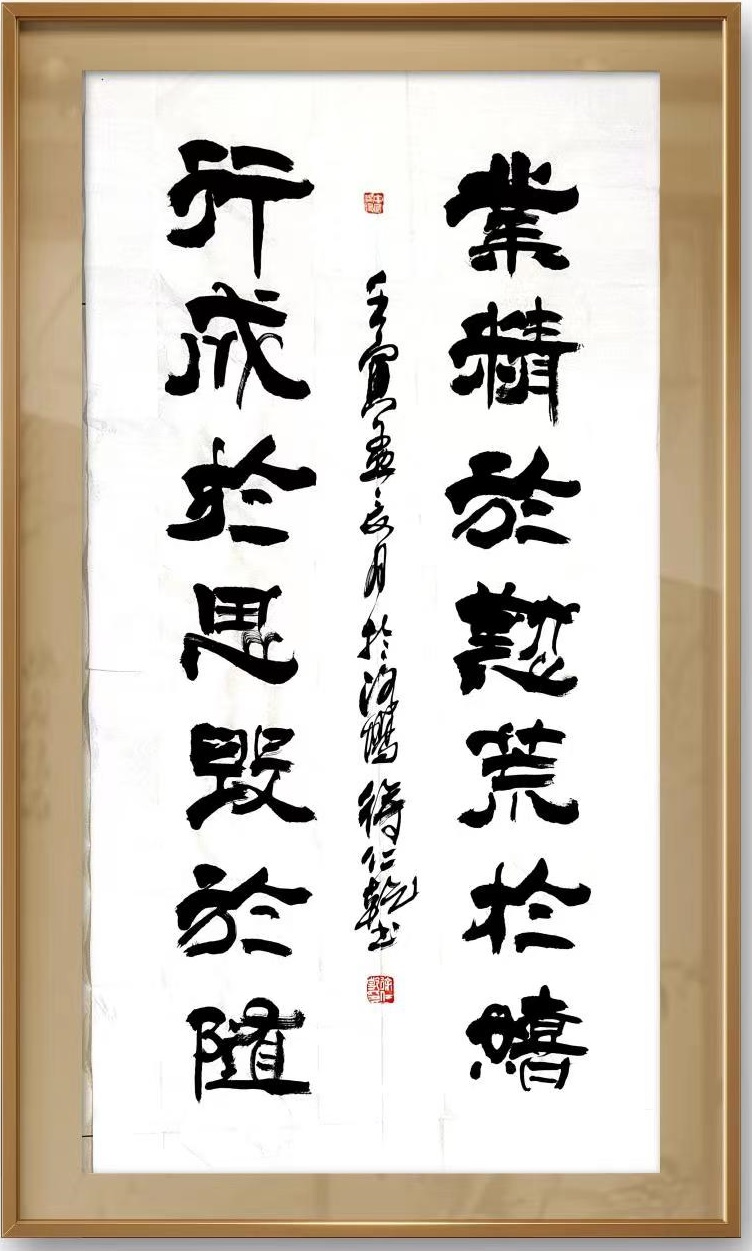 業精於勤荒於嬉
行成於思毀於隨
壬寅孟夏月於 徐仁乾書